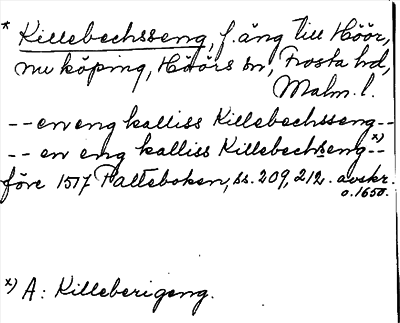 * Killebechsseng, f. äng till Höör,
nu köping, Höörs sn, Frosta hd,
Malm. l.
-- en eng kalliss Killebechsseng --
-- en eng kalliss Killebechseng x) --
före 1517 Palteboken, ss. 209, 212. avskr.
o. 1650.
x) A: Killeberigeng.